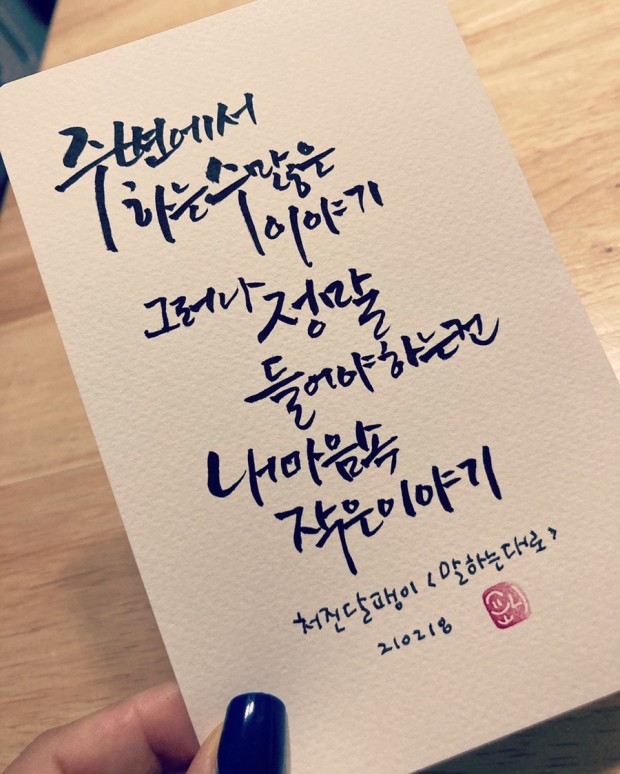 주변에서
하는 수많은
이야기
그러나 정말
들어야하는건
내 마음속
작은 이야기
처진달팽이 <말하는대로>
210218